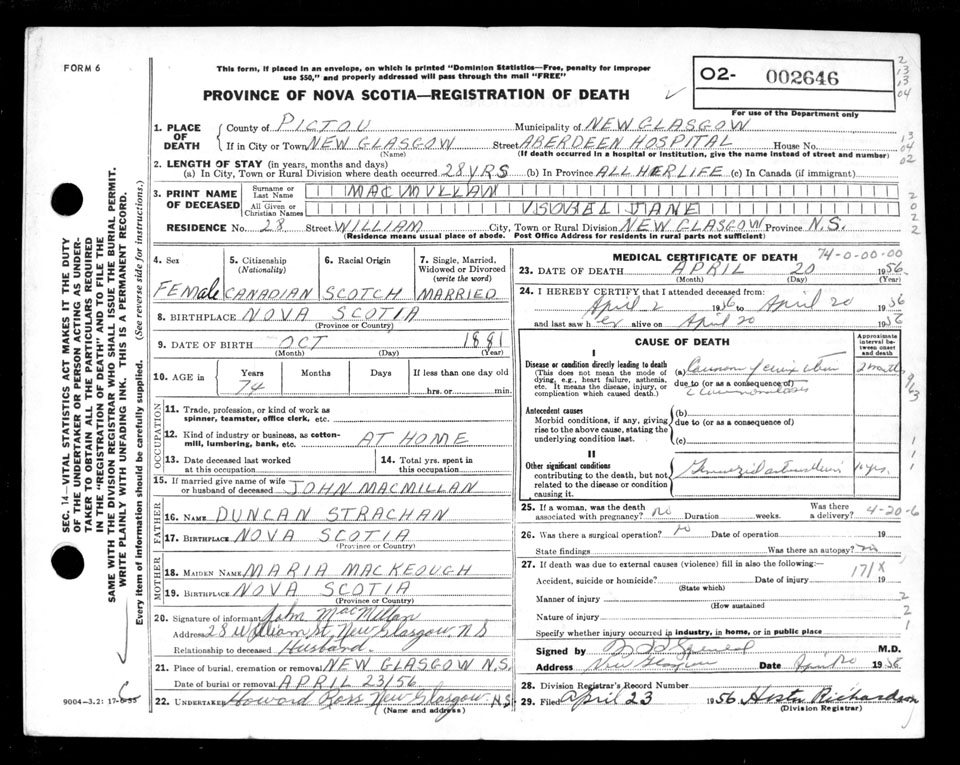 FORM 6
This form, if placed in an envelope, on which is printed "Dominion Statistics—Free, penalty for improper
use $50," and properly addressed will pass through the mail "FREE"
PROVINCE OF NOVA SCOTIA—REGISTRATION OF DEATH
O2- 002646
For use of the Department only
2
13
13
04
1. PLACE OF DEATH
County of PICTOU Municipality of NEW GLASGOW
If in City or Town NEW GLASGOW Street ABERDEEN HOSPITAL House No.
(Name) (If death occurred in a hospital or institution, give the name instead of street and number)
13
04
02
2. LENGTH OF STAY (in years, months and days)
(a) In City, Town or Rural Division where death occurred 28 YRS (b) In Province ALL HER LIFE (c) In Canada (if immigrant)
3. PRINT NAME OF DECEASED
Surname or Last Name MACMILLAN
All Given or Christian Names ISOBEL JANE
2
0
2
2
RESIDENCE No. 28 Street WILLIAM City, Town or Rural Division NEW GLASGOW Province N.S.
(Residence means usual place of abode. Post Office Address for residents in rural parts not sufficient)
4. Sex FEMale
5. Citizenship (Nationality) CANADIAN
6. Racial Origin SCOTCH
7. Single, Married, Widowed or Divorced (write the word) MARRIED
8. BIRTHPLACE NOVA SCOTIA
(Province or Country)
9. DATE OF BIRTH OCT 1881
(Month) (Day) (Year)
10. AGE in Years Months Days If less than one day old
74 hrs. or min.
OCCUPATION
11. Trade, profession, or kind of work as
spinner, teamster, office clerk, etc.
12. Kind of industry or business, as cotton-
mill, lumbering, bank, etc. AT HOME
13. Date deceased last worked
at this occupation
14. Total yrs. spent in
this occupation
15. If married give name of wife
or husband of deceased JOHN MACMILLAN
FATHER
16. NAME DUNCAN STRACHAN
17. BIRTHPLACE NOVA SCOTIA
(Province or Country)
MOTHER
18. MAIDEN NAME MARIA MACKEOUGH
19. BIRTHPLACE NOVA SCOTIA
(Province or Country)
20. Signature of informant John MacMillan
Address 28 William St, New Glasgow, NS
Relationship to deceased Husband.
21. Place of burial, cremation or removal NEW GLASGOW N.S.
Date of burial or removal APRIL 23/56
22. UNDERTAKER Howard Ross New Glasgow N.S.
(Name and address)
MEDICAL CERTIFICATE OF DEATH 74-0-00-00
23. DATE OF DEATH APRIL 20 1956
(Month) (Day) (Year)
24. I HEREBY CERTIFY that I attended deceased from:
April 2 1956 to April 20 1956
and last saw her alive on April 20 1956
CAUSE OF DEATH
Approximate interval between onset and death
I
Disease or condition directly leading to death
(This does not mean the mode of
dying, e.g., heart failure, asthenia,
etc. It means the disease, injury, or
complication which caused death.)
(a) 2 months
due to (or as a consequence of)
9
63
Antecedent causes
Morbid conditions, if any, giving
rise to the above cause, stating the
underlying condition last.
(b)
due to (or as a consequence of)
(c)
II
Other significant conditions
contributing to the death, but not
related to the disease or condition
causing it.
yrs.
1
1
1
25. If a woman, was the death
associated with pregnancy? no Duration weeks. Was there a delivery? 4-20-6
26. Was there a surgical operation? no Date of operation 19
State findings Was there an autopsy? no
27. If death was due to external causes (violence) fill in also the following:
Accident, suicide or homicide? Date of injury 19
171X
(State which)
Manner of injury 2
(How sustained)
Nature of injury 2
1
Specify whether injury occurred in industry, in home, or in public place
Signed by M.D.
Address New Glasgow Date April 20 1956
28. Division Registrar's Record Number
29. Filed April 23 1956 Richardson
(Division Registrar)
SEC. 14—VITAL STATISTICS ACT MAKES IT THE DUTY
OF THE UNDERTAKER OR PERSON ACTING AS UNDER-
TAKER TO OBTAIN ALL THE PARTICULARS REQUIRED
IN THE "REGISTRATION OF DEATH" AND TO FILE THE
SAME WITH THE DIVISION REGISTRAR WHO SHALL ISSUE THE BURIAL PERMIT.
WRITE PLAINLY WITH UNFADING INK. THIS IS A PERMANENT RECORD.
Every item of information should be carefully supplied. (See reverse side for instructions.)
9004-3.2: 17-6-55